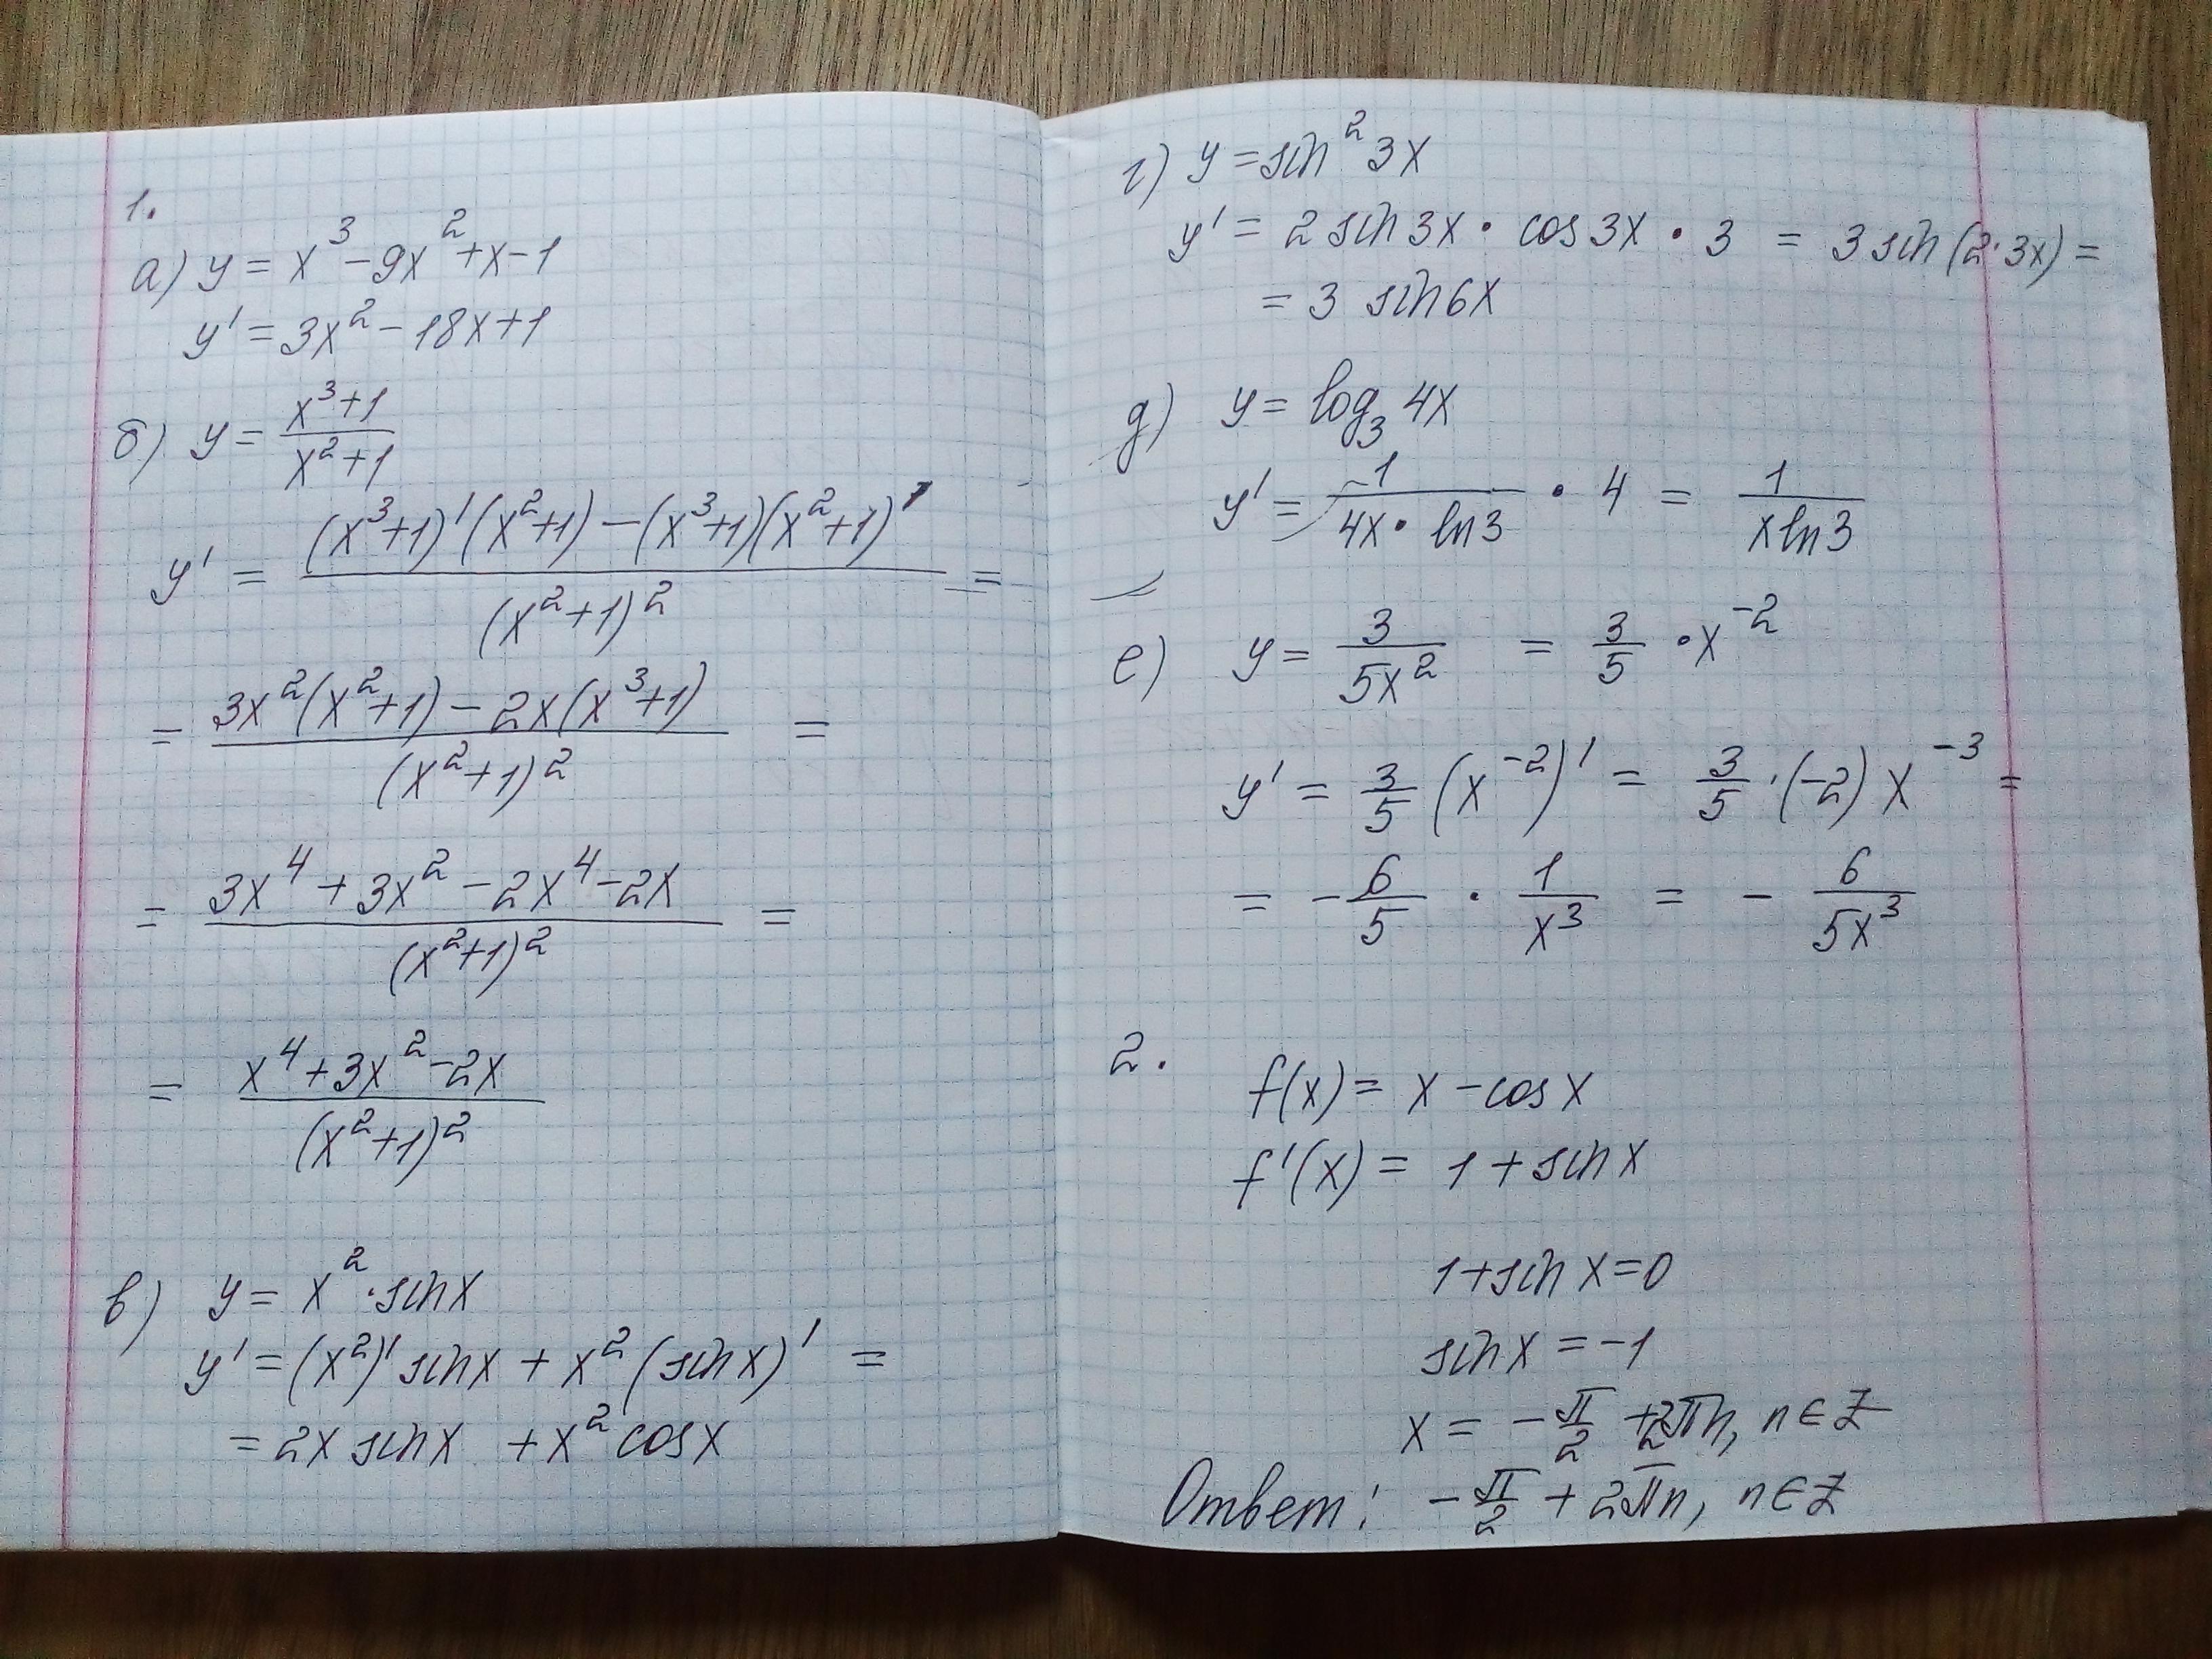 1.
а) y = x³ - 9x² + x - 1
y' = 3x² - 18x + 1
б) y = (x³+1)/(x²+1)
y' = ((x³+1)'(x²+1) - (x³+1)(x²+1)')/(x²+1)² =
= (3x²(x²+1) - 2x(x³+1))/(x²+1)² =
= (3x⁴ + 3x² - 2x⁴ - 2x)/(x²+1)² =
= (x⁴ + 3x² - 2x)/(x²+1)²
в) y = x² · sin x
y' = (x²)' sin x + x² (sin x)' =
= 2x sin x + x² cos x
г) y = sin² 3x
y' = 2 sin 3x · cos 3x · 3 = 3 sin (2·3x) =
= 3 sin 6x
д) y = log₃ 4x
y' = 1/(4x · ln 3) · 4 = 1/(x ln 3)
е) y = 3/(5x²) = 3/5 · x⁻²
y' = 3/5 (x⁻²)' = 3/5 · (-2) x⁻³ =
= - 6/5 · 1/x³ = - 6/(5x³)
2.
f(x) = x - cos x
f'(x) = 1 + sin x
1 + sin x = 0
sin x = -1
x = - π/2 + 2πn, n ∈ Z
Ответ: - π/2 + 2πn, n ∈ Z